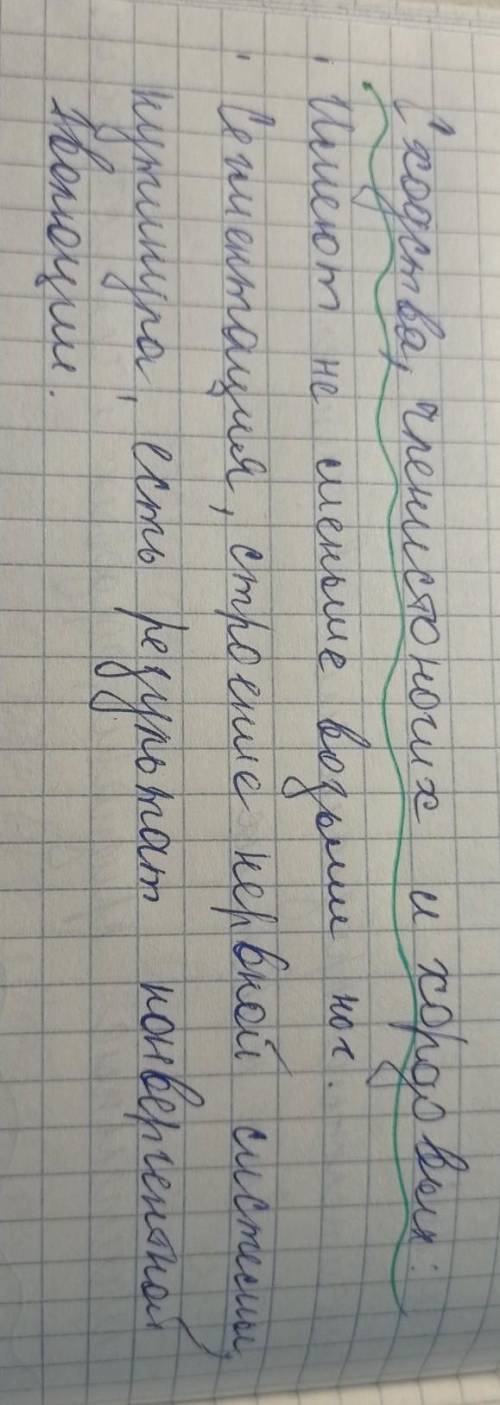 Сходства, членистоногих и хордовых:
Имеют не меньше возьми ног.
Сегментация, строение нервной системы,
кутикула, есть результат конвергентной
эволюции.